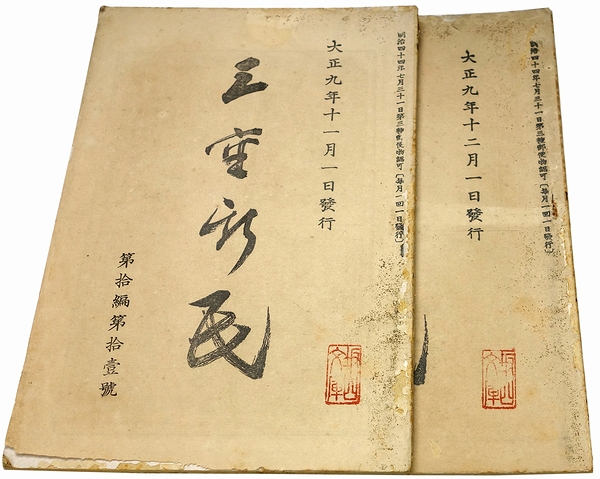 明治四十四年七月三十一日第三種郵便物認可(毎月一回一日發行)
大正九年十一月一日發行
三重新民
第拾編第拾壹號
明治四十四年七月三十一日第三種郵便物認可(毎月一回一日發行)
大正九年十二月一日發行